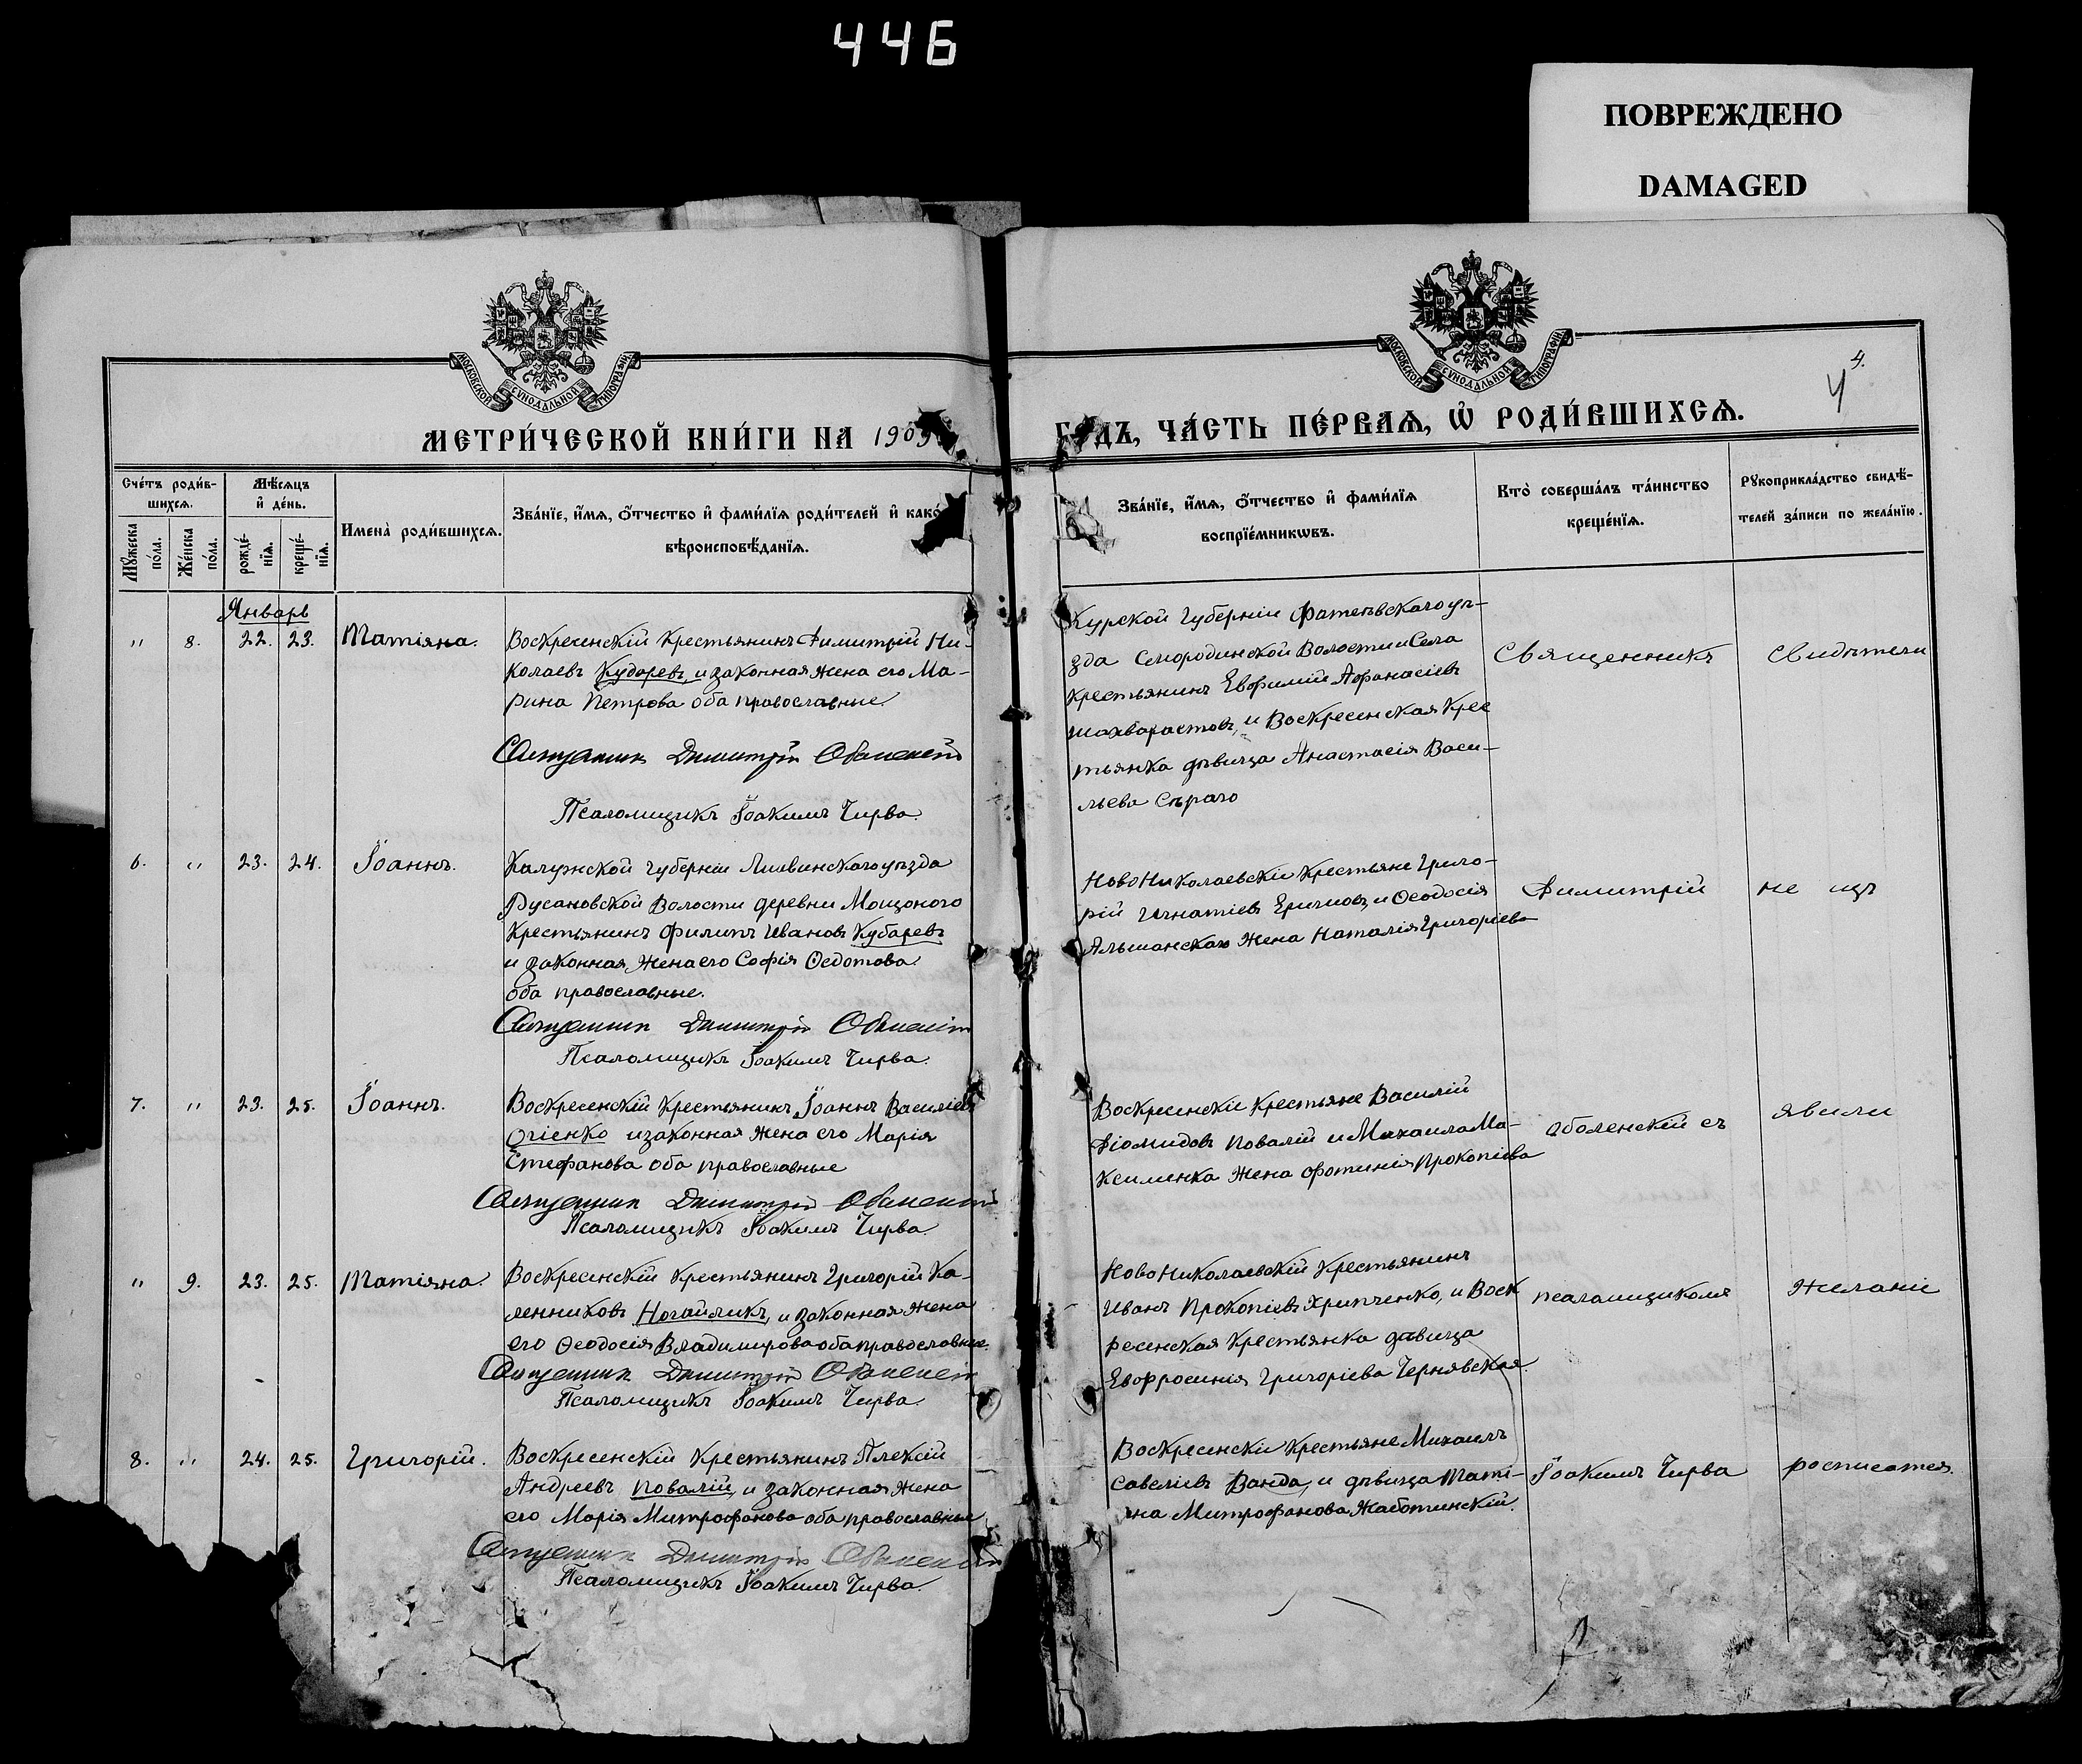 446
ПОВРЕЖДЕНО
DAMAGED
МОСКОВСКОЙ СѴНОДАЛЬНОЙ ТИПОГРАФІИ
МОСКОВСКОЙ СѴНОДАЛЬНОЙ ТИПОГРАФІИ
4.
4
МЕТРИ́ЧЕСКОЙ КНИ́ГИ НА 1909
ГОДЪ, ЧА́СТЬ ПЕ́РВАѦ, Ѽ РОДИ́ВШИХСѦ.
Сче́тъ роди́в-
шихсѧ.
Мꙋ́жеска по́ла.
Же́нска по́ла.
Мѣ́сѧцъ
и҆ де́нь.
рожде́-
нїѧ.
креще́-
нїѧ.
Имена̀ роди́вшихсѧ.
Зва́нїе, и҆́мѧ, ѻ҆́тчество и҆ фами́лїѧ роди́телей и҆ како́
вѣроисповѣ́данїѧ.
Зва́нїе, и҆́мѧ, ѻ҆́тчество и҆ фами́лїѧ
воспрїе́мникѡвъ.
Кто̀ соверша́лъ та́инство
креще́нїѧ.
Рꙋкоприкла́дство свидѣ́-
телей за́писи по жела́нїю.
Январь
" 8. 22. 23. Татіяна.
Воскресенскій крестьянинъ Димитрій Ни-
колаевъ Кударевъ, и законная жена его Ма-
рина Петрова оба православные
Священникъ Димитрій Оболенскій
Псаломщикъ Іоакимъ Чирва.
Курской губерніи Фатевскаго уѣ-
зда Смородинской Волости и Села
крестьянинъ Евфимій Афанасіевъ
и Воскресенская крес
тьянка дѣвица Анастасія Васи-
льева Сѣраго
Священникъ
Свидѣтели
6. " 23. 24. Іоаннъ.
Калужской губерніи Лихвинскаго уѣзда
Русановской Волости деревни Мощоного
крестьянинъ Филипъ Ивановъ Кубаревъ
и законная жена его Софія Ѳедотова
оба православные.
Священникъ Димитрій Оболенскій
Псаломщикъ Іоакимъ Чирва.
Ново Николаевскіе крестьяне Григо-
рій Игнатіевъ и Ѳеодосія
Альшанскаго жена Наталія Григоріева
Димитрій
не изъ
7. " 23. 25. Іоаннъ.
Воскресенскій крестьянинъ Іоаннъ Василіевъ
Огіенко и законная жена его Марія
Стефанова оба православные
Священникъ Димитрій Оболенскій
Псаломщикъ Іоакимъ Чирва.
Воскресенскіе крестьяне Василій
Діомидовъ Повалій и Михаила Ма-
ксименка жена Фотинія Прокопіева
Оболенскій съ
явили
" 9. 23. 25. Татіяна.
Воскресенскій крестьянинъ Григорій Ка-
ленниковъ Ногайликъ, и законная жена
его Ѳеодосія Владимирова оба православные.
Священникъ Димитрій Оболенскій
Псаломщикъ Іоакимъ Чирва.
Ново Николаевскій крестьянинъ
Иванъ Прокопіевъ Хрипченко, и Воск
ресенская крестьянка дѣвица
Евфросинія Григоріева Чернявская.
псаломщикомъ
желаніе
8. " 24. 25. Григорій.
Воскресенскій крестьянинъ Алексій
Андреевъ Повалій, и законная жена
его Марія Митрофанова оба православные
Священникъ Димитрій Оболенскій
Псаломщикъ Іоакимъ Чирва.
Воскресенскіе крестьяне Михаилъ
Савеліевъ Ванда, и дѣвица Таті-
яна Митрофанова Жаботинскій.
Іоакимъ Чирва
росписатся.